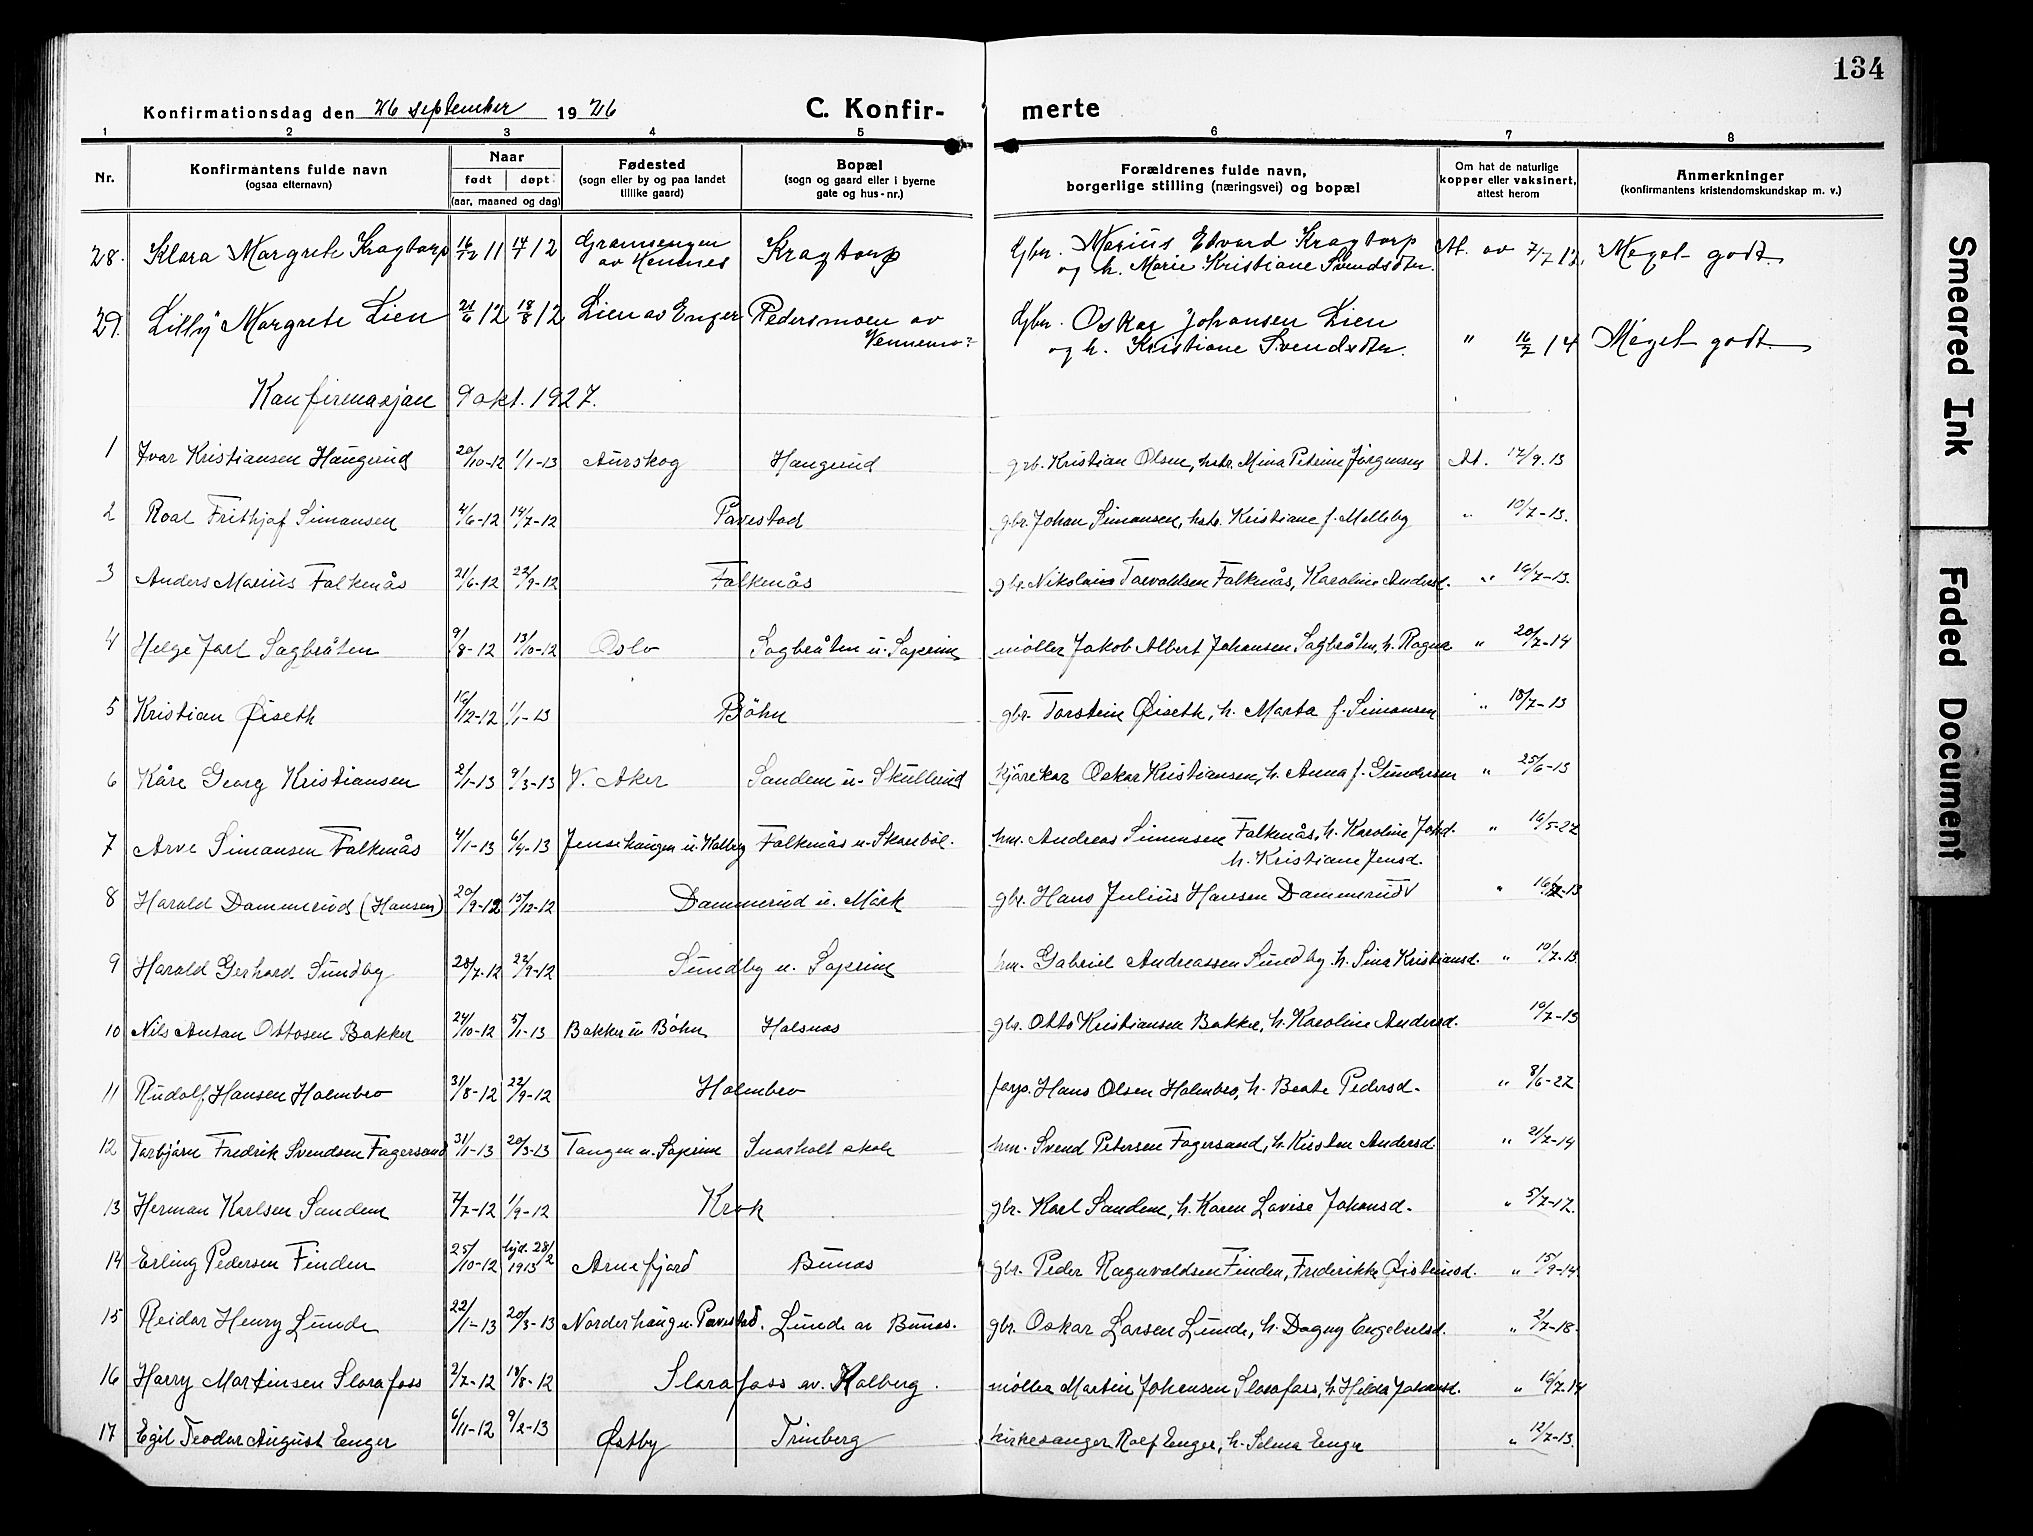 134
Konfirmationsdag den 26 september 1926 C. Konfir- merte
1 2 3 4 5 6 7 8
Nr. Konfirmantens fulde navn (ogsaa efternavn) Naar født døpt (aar, maaned og dag) Fødested (sogn eller by og paa landet tillike gaard) Bopæl (sogn og gaard eller i byerne gate og hus-nr.) Forældrenes fulde navn, borgerlige stilling (næringsvei) og bopæl Om hat de naturlige kopper eller vaksinert, attest herom Anmerkninger (konfirmantens kristendomskundskap m. v.)
28. Klara Margrete Kragtorp 16/12 11 12 av Kragtorp Gbr. Marius Edvard Kragtorp At. av 7/7 12. Meget godt.
og h. Marie Kristiane Svendsdtr.
29. Lilly Margrete Lien 21/6 12 18/8 12 Lien av Enger Pedersmoen av Gbr. Oskar Johansen Lien " 16/7 14 Meget godt.
og h. Kristiane Svendsdtr.
Konfirmasjon 9 okt. 1927.
1 Ivar Kristiansen Haugerud 20/10-12 1/1-13 Aurskog Haugerud gbr. Kristian Olsen, hstr. Mina Petrine Jørgensen At. 17/9.13
2 Roal Frithjof Simonsen 4/6-12 14/7-12 Pavestad gbr. Johan Simonsen, hstr. Kristiane f. Melleby " 10/7-13.
3 Anders Marius Falkenås 21/6-12 22/9-12 Falkenås gbr. Nikolais Torvaldsen Falkenås, Karoline Andersd. " 16/7-13.
4 Helge Jarl Sagbråten 9/8-12 13/10-12 Oslo Sagbråten u. Soprim møller Jakob Albert Johansen Sagbråten, h. Ragna " 20/7-14
5 Kristian Øiseth 16/12-12 1/1-13 Böhn gbr. Torstein Øiseth, h. Marta f. Simonsen " 18/7-13
6 Kåre Georg Kristiansen 2/1-13 9/3-13 V. Aker Sandem u. Skullerud kjørekar Oskar Kristiansen, h. Anna f. Gundersen " 25/6-13
7 Arve Simonsen Falkenås 4/1-13 6/4-13 Jensehaugen u. Kolberg Falkenås u. Skarbøl. hm. Andreas Simonsen Falkenås, h. Karoline Johd. " 16/5-27
h. Kristiane Jensd.
8 Harald Dammerud (Hansen) 20/9-12 15/12-12 Dammerud u. Mørk gbr. Hans Julius Hansen Dammerud " 16/7-13
9 Harald Gerhard Sundby 28/7-12 22/9-12 Sundby u. Soprim hm. Gabriel Andreassen Sundby h. Sina Kristiansd. " 10/7-13
10 Nils Anton Ottosen Bakker 24/10-12 5/1-13 Bakker u Böhn Halsnes gbr. Otto Kristiansen Bakker, h. Karoline Andersd. 10/7-13
11 Rudolf Hansen Holmbro 31/8-12 22/9-12 Holmbro forp. Hans Olsen Holmbro, h. Beate Pedersd. " 8/6-27
12 Torbjørn Fredrik Svendsen Fagersand 31/1-13 20/3-13 Tangen u. Soprim Snarholt skole hm. Svend Petersen Fagersand, h. Kirsten Andersd " 21/7-14
13 Herman Karlsen Sandem 7/7-12 1/9-12 Krok gbr. Karl Sandem, h. Karen Lovise Johansd. " 5/7-17.
14 Erling Pedersen Finden 25/10-12 hjd. 28/2 1913 Arnafjord Bunes gbr. Peder Ragnvaldsen Finden, Frederikke Øisteinsd. " 15/9-14
15 Reidar Henry Lunde 22/1-13 20/3-13 Norderhaug u. Pavestad. Lunde av Bunes. gbr. Oskar Larsen Lunde, h. Dagny Engebretsd. " 2/7-18.
16 Harry Martinsen Slorafoss 2/7-12 18/8-12 Slorafoss av. Kolberg. møller Martin Johansen Slorafoss, h. Hilda Johansd. " 16/7.14
17 Egil Teodor August Enger 6/11-12 9/2-13 Østby Trinborg kirkesanger Rolf Enger, h. Selma Enger " 12/7-13.
Smeared Ink
Faded Document